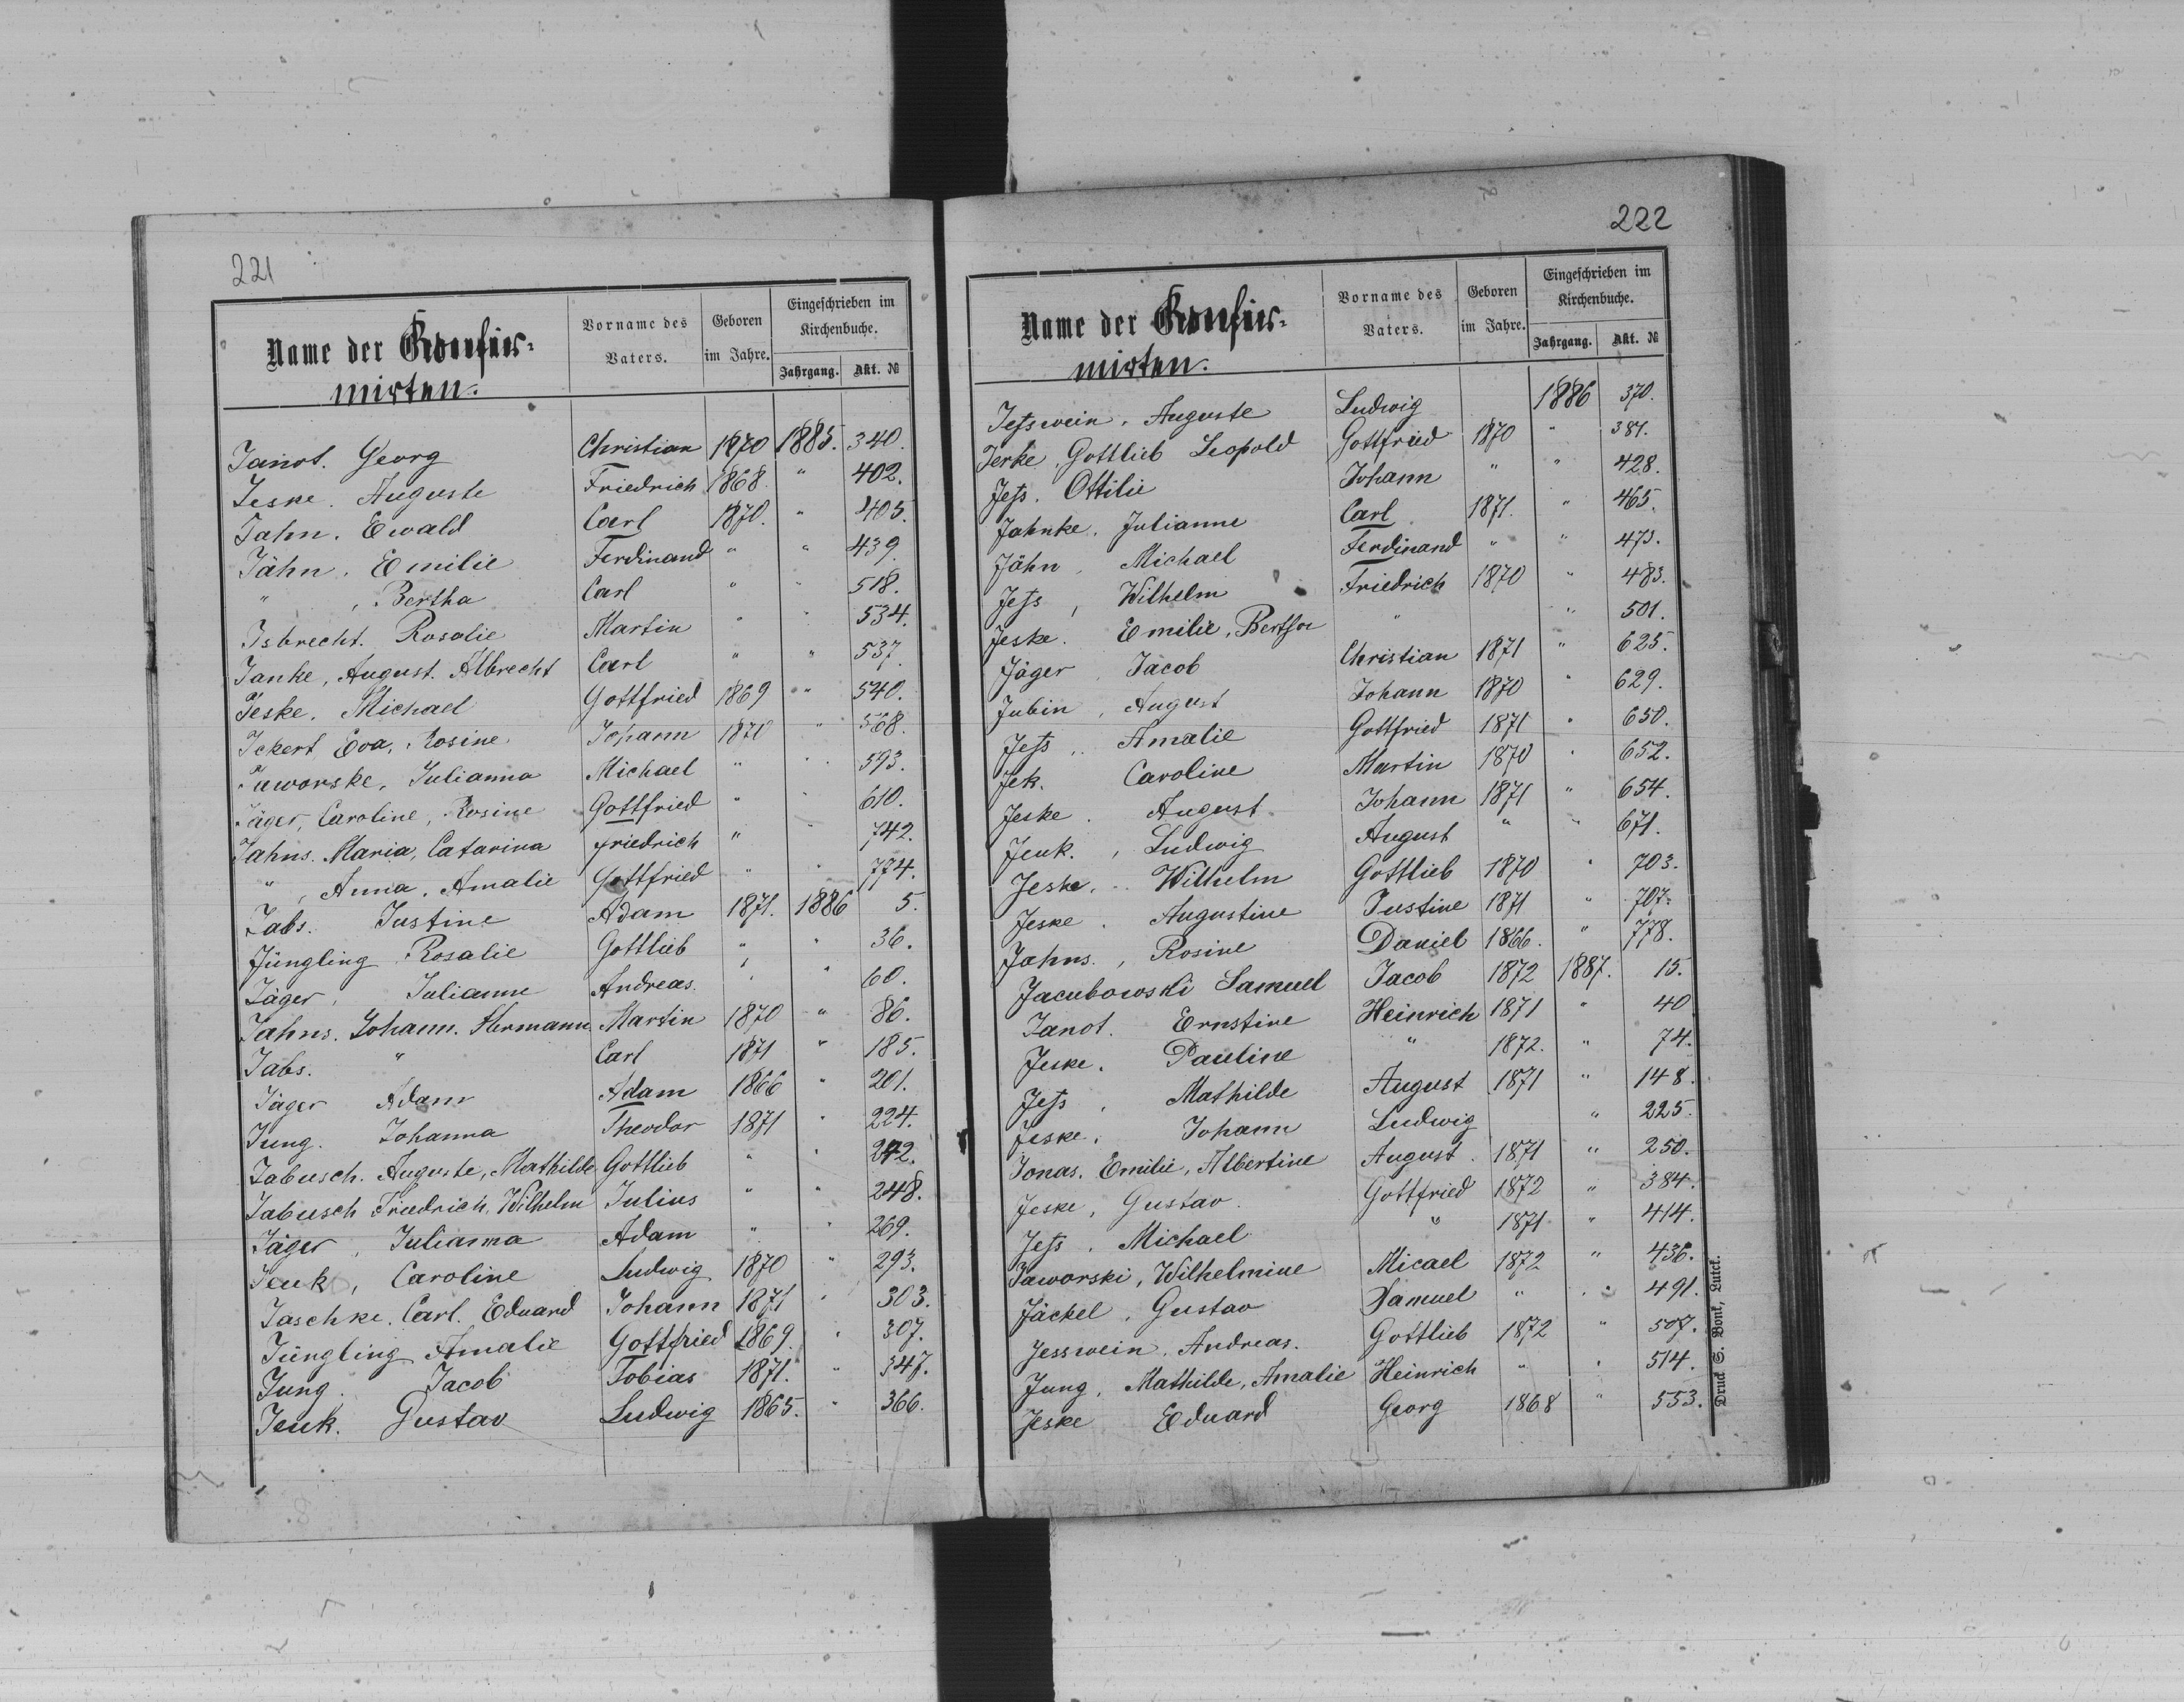 221
Name der Konfir-
mirten.
Vorname des
Vaters.
Geboren
im Jahre.
Eingeschrieben im
Kirchenbuche.
Jahrgang. Akt. №
Janot. Georg Christian 1870 1885. 340.
Jeske. Auguste Friedrich 1868. " 402.
Jahn. Ewald Carl 1870. " 405.
Jähn. Emilie Ferdinand " " 439.
" , Bertha Carl " " 518.
Isbrecht. Rosalie Martin " " 534.
Janke, August. Albrecht Carl " " 537.
Jeske. Michael Gottfried 1869 " 540.
Ickert Eva, Rosine Johann 1870 " 568.
Jaworske, Julianna Michael " " 593.
Jäger, Caroline, Rosine Gottfried " " 610.
Jahns. Maria, Catarina Friedrich " " 742.
" , Anna. Amalie Gottfried " " 774.
Jabs. Justine Adam 1871. 1886 5.
Jüngling Rosalie Gottlieb " " 36.
Jäger, Julianne Andreas " " 60.
Jahns. Johann. Hermann Martin 1870 " 86.
Jabs. " Carl 1871 " 185.
Jäger Adam Adam 1866 " 201.
Jung. Johanna Theodor 1871 " 224.
Jabusch. Auguste, Mathilde Gottlieb " " 242.
Jabusch Friedrich, Wilhelm Julius " " 248.
Jäger, Julianna Adam " " 269.
Jeuk, Caroline Ludwig 1870 " 293.
Jaschke. Carl. Eduard Johann 1871 " 303.
Jüngling Amalie Gottfried 1869. " 307.
Jung. Jacob Tobias 1871. " 347.
Jeuk. Gustav Ludwig 1865. " 366.
222
Name der Konfir-
mirten.
Vorname des
Vaters.
Geboren
im Jahre.
Eingeschrieben im
Kirchenbuche.
Jahrgang. Akt. №
Jesswein, Auguste Ludwig 1886 370.
Jerke, Gottlieb Leopold Gottfried 1870 " 381.
Jess. Ottilie Johann " " 428.
Jahnke. Julianne Carl 1871. " 465.
Jähn, Michael Ferdinand " " 473.
Jess, Wilhelm Friedrich 1870 " 483.
Jeske. Emilie, Bertha " " 501.
Jäger, Jacob Christian 1871 " 625.
Jubin, August Johann 1870 " 629.
Jess, Amalie Gottfried 1871 " 650.
Jek. Caroline Martin 1870 " 652.
Jeske. August Johann 1871 " 654.
Jeuk., Ludwig August " " 671.
Jeske, Wilhelm Gottlieb 1870 " 703.
Jeske. Augustine Justine 1871 " 707.
Jahns., Rosine Daniel 1866. " 778.
Jacubowski Samuel Jacob 1872 1887. 15.
Janot. Ernstine Heinrich 1871 " 40
Jeske. Pauline " 1872. " 74.
Jess, Mathilde August 1871 " 148.
Jeske, Johann Ludwig " 225.
Jonas. Emilie, Albertine August. 1871 " 250.
Jeske, Gustav. Gottfried 1872 " 384.
Jess. Michael " 1871 " 414.
Jaworski, Wilhelmine Micael 1872 " 436.
Jäckel, Gustav Samuel " " 491.
Jesswein. Andreas. Gottlieb 1872 " 507.
Jung, Mathilde, Amalie Heinrich " " 514.
Jeske Eduard Georg 1868 " 553.
Druck S. Bonk, Lutck.